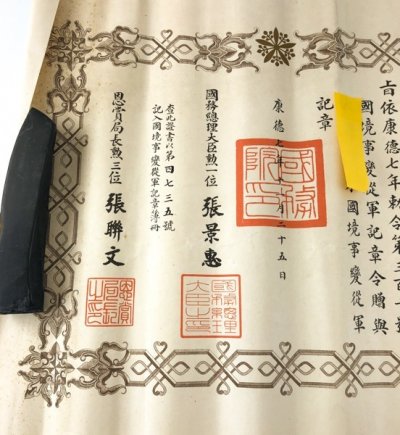 旨依康德七年勅令第三百
國境事變從軍記章令贈與
國境事變從軍
記章
康德七年 月二十五日
國務院印
國務總理大臣勲一位 張景惠
查此證書以第四七三五號
記入國境事變從軍記章簿冊
恩賞局長勲三位 張聯文
恩賞局長之印